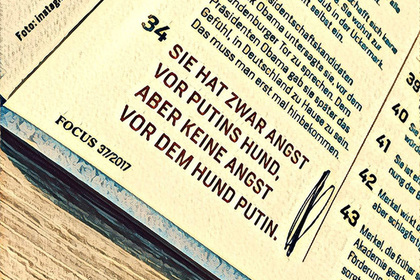 Foto: instag
schafft sich keine
Er wohnt zu
aub in der
Uckermark.
dentschaftskandidaten
Obama untersagte sie, vor dem
ndenburger Tor zu sprechen. Dem
Präsidenten Obama gab sie später das
Gefühl, in Deutschland zu Hause zu sein.
Das muss man erst mal hinbekommen.
34
SIE HAT ZWAR ANGST
VOR PUTINS HUND,
ABER KEINE ANGST
VOR DEM HUND PUTIN.
FOCUS 37/2017
40
41 Sie n
nung
42 Merkel wirkt
aber schlagfer
43 Merkel, die früh
Akademie
Förderun